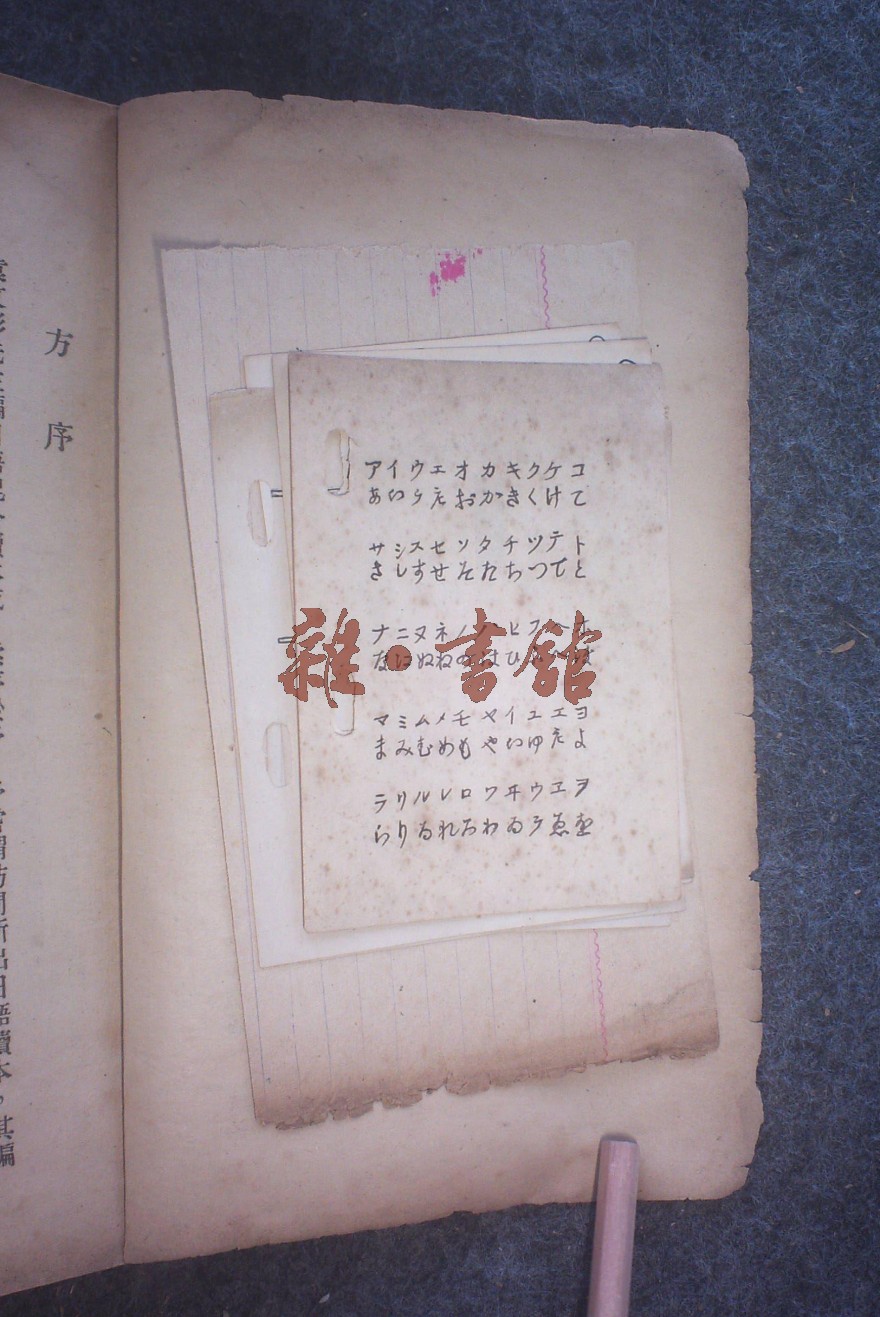 方序
アイウエオカキクケコ
あいうえおかきくけこ
サシスセソタチツテト
さしすせそたちつてと
ナニヌネノハヒフヘホ
なにぬねのはひふへほ
雜·書館
マミムメモヤイユエヨ
まみむめもやいゆえよ
ラリルレロワヰウヱヲ
らりるれろわゐうゑを
訪間所出日語讀本。其編